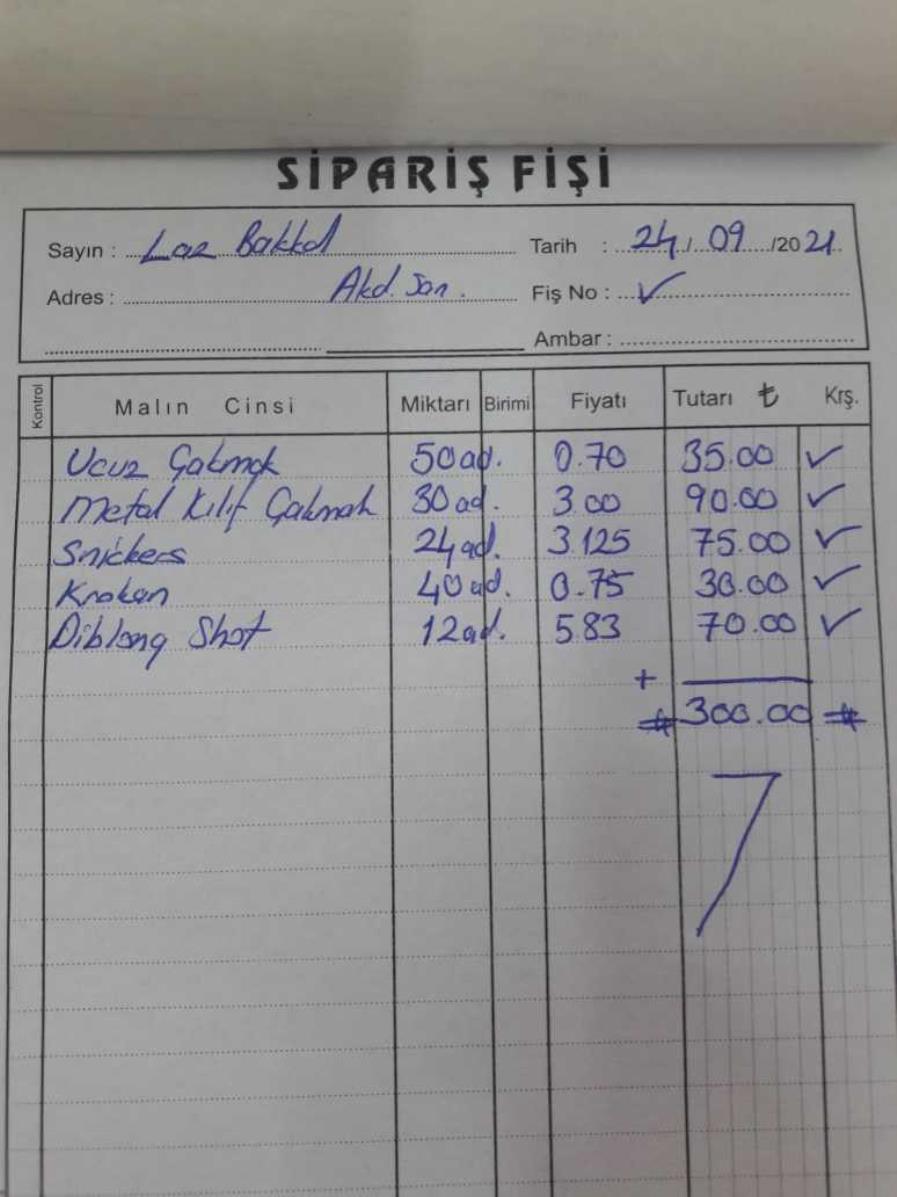 SİPARİŞ FİŞİ
Sayın : Laz Bakkal Tarih : 24 / 09 /2021
Adres : Akd. San. Fiş No : ✓
Ambar :
Kontrol Malın Cinsi Miktarı Birimi Fiyatı Tutarı ₺ Krş.
Ucuz Çakmak 50 ad. 0.70 35.00 ✓
Metal Kılıf Çakmak 30 ad. 3.00 90.00 ✓
Snickers 24 ad. 3.125 75.00 ✓
Kraken 40 ad. 0.75 30.00 ✓
Diblong Shot 12 ad. 5.83 70.00 ✓
+
# 300.00 #